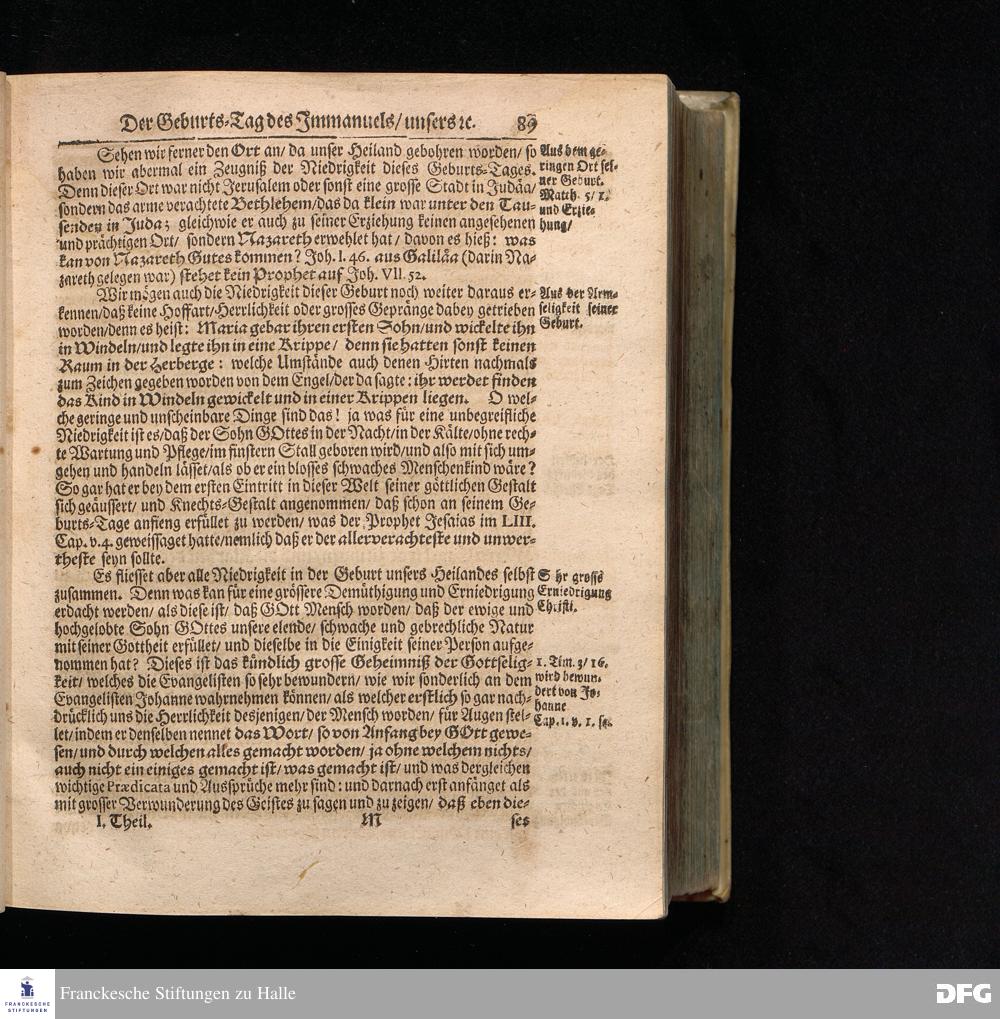 Der Geburts-Tag des Immanuels/ unsers ꝛc. 89
Sehen wir ferner den Ort an/ da unser Heiland gebohren worden/ so
haben wir abermal ein Zeugniß der Niedrigkeit dieses Geburts-Tages.
Denn dieser Ort war nicht Jerusalem oder sonst eine grosse Stadt in Judäa/
sondern das arme verachtete Bethlehem/ das da klein war unter den Tau-
senden in Juda; gleichwie er auch zu seiner Erziehung keinen angesehenen
und prächtigen Ort/ sondern Nazareth erwehlet hat/ davon es hieß: was
kan von Nazareth Gutes kommen? Joh. I. 46. aus Galiläa (darin Na-
zareth gelegen war) stehet kein Prophet auf Joh. VII. 52.
Aus dem ge-
ringen Ort sei-
ner Geburt.
Matth. 5/ 1.
und Erzie-
hung/
Wir mögen auch die Niedrigkeit dieser Geburt noch weiter daraus er-
kennen/ daß keine Hoffart/ Herrlichkeit oder grosses Gepränge dabey getrieben
worden/ denn es heist: Maria gebar ihren ersten Sohn/ und wickelte ihn
in Windeln/ und legte ihn in eine Krippe/ denn sie hatten sonst keinen
Raum in der Herberge: welche Umstände auch denen Hirten nachmals
zum Zeichen gegeben worden von dem Engel/ der da sagte: ihr werdet finden
das Kind in Windeln gewickelt und in einer Krippen liegen. O wel-
che geringe und unscheinbare Dinge sind das! ja was für eine unbegreifliche
Niedrigkeit ist es/ daß der Sohn GOttes in der Nacht/ in der Kälte/ ohne rech-
te Wartung und Pflege/ im finstern Stall geboren wird/ und also mit sich um-
gehen und handeln lässet/ als ob er ein blosses schwaches Menschenkind wäre?
So gar hat er bey dem ersten Eintritt in dieser Welt seiner göttlichen Gestalt
sich geäussert/ und Knechts-Gestalt angenommen/ daß schon an seinem Ge-
burts-Tage anfieng erfüllet zu werden/ was der Prophet Jesaias im LIII.
Cap. v. 4. geweissaget hatte/ nemlich daß er der allerverachteste und unwer-
theste seyn sollte.
Aus der Arm-
seligkeit seiner
Geburt.
Es fliesset aber alle Niedrigkeit in der Geburt unsers Heilandes selbst
zusammen. Denn was kan für eine grössere Demüthigung und Erniedrigung
erdacht werden/ als diese ist/ daß GOtt Mensch worden/ daß der ewige und
hochgelobte Sohn GOttes unsere elende/ schwache und gebrechliche Natur
mit seiner Gottheit erfüllet/ und dieselbe in die Einigkeit seiner Person aufge-
nommen hat? Dieses ist das kündlich grosse Geheimniß der Gottselig-
keit/ welches die Evangelisten so sehr bewundern/ wie wir sonderlich an dem
Evangelisten Johanne wahrnehmen können/ als welcher erstlich so gar nach-
drücklich uns die Herrlichkeit desjenigen/ der Mensch worden/ für Augen stel-
let/ indem er denselben nennet das Wort/ so von Anfang bey GOtt gewe-
sen/ und durch welchen alles gemacht worden/ ja ohne welchem nichts/
auch nicht ein einiges gemacht ist/ was gemacht ist/ und was dergleichen
wichtige Prædicata und Aussprüche mehr sind: und darnach erst anfänget als
mit grosser Verwunderung des Geistes zu sagen und zu zeigen/ daß eben die-
Sehr grosse
Erniedrigung
Christi.
1. Tim. 3/ 16.
wird bewun-
dert von Jo-
hanne
Cap. 1. v. 1. sq.
I. Theil. M ses
FRANCKESCHE
STIFTUNGEN
Franckesche Stiftungen zu Halle
DFG